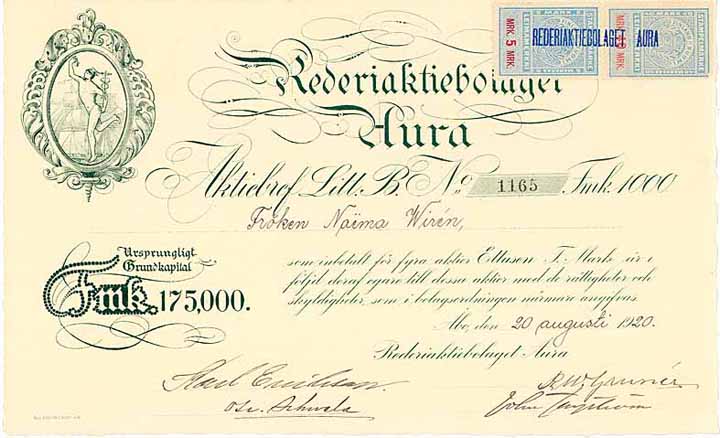 MRK. 5 MRK.
MARK
STÄMPELMÄRKE
LEIMAMERKKI
REDERIAKTIEBOLAGET AURA
MRK.
Rederiaktiebolaget
Aura
Aktiebref Litt. B. No 1165 Fmk. 1000
Fröken Naëma Wirén,
Ursprungligt
Grundkapital
Fmk. 175,000.
som inbetalt för fyra aktier Ettusen F. Mark är i
följd deraf egare till dessa aktier med de rättigheter och
skyldigheter, som i bolagsordningen närmare angifvas.
Åbo, den 20 augusti 1920.
Rederiaktiebolaget Aura